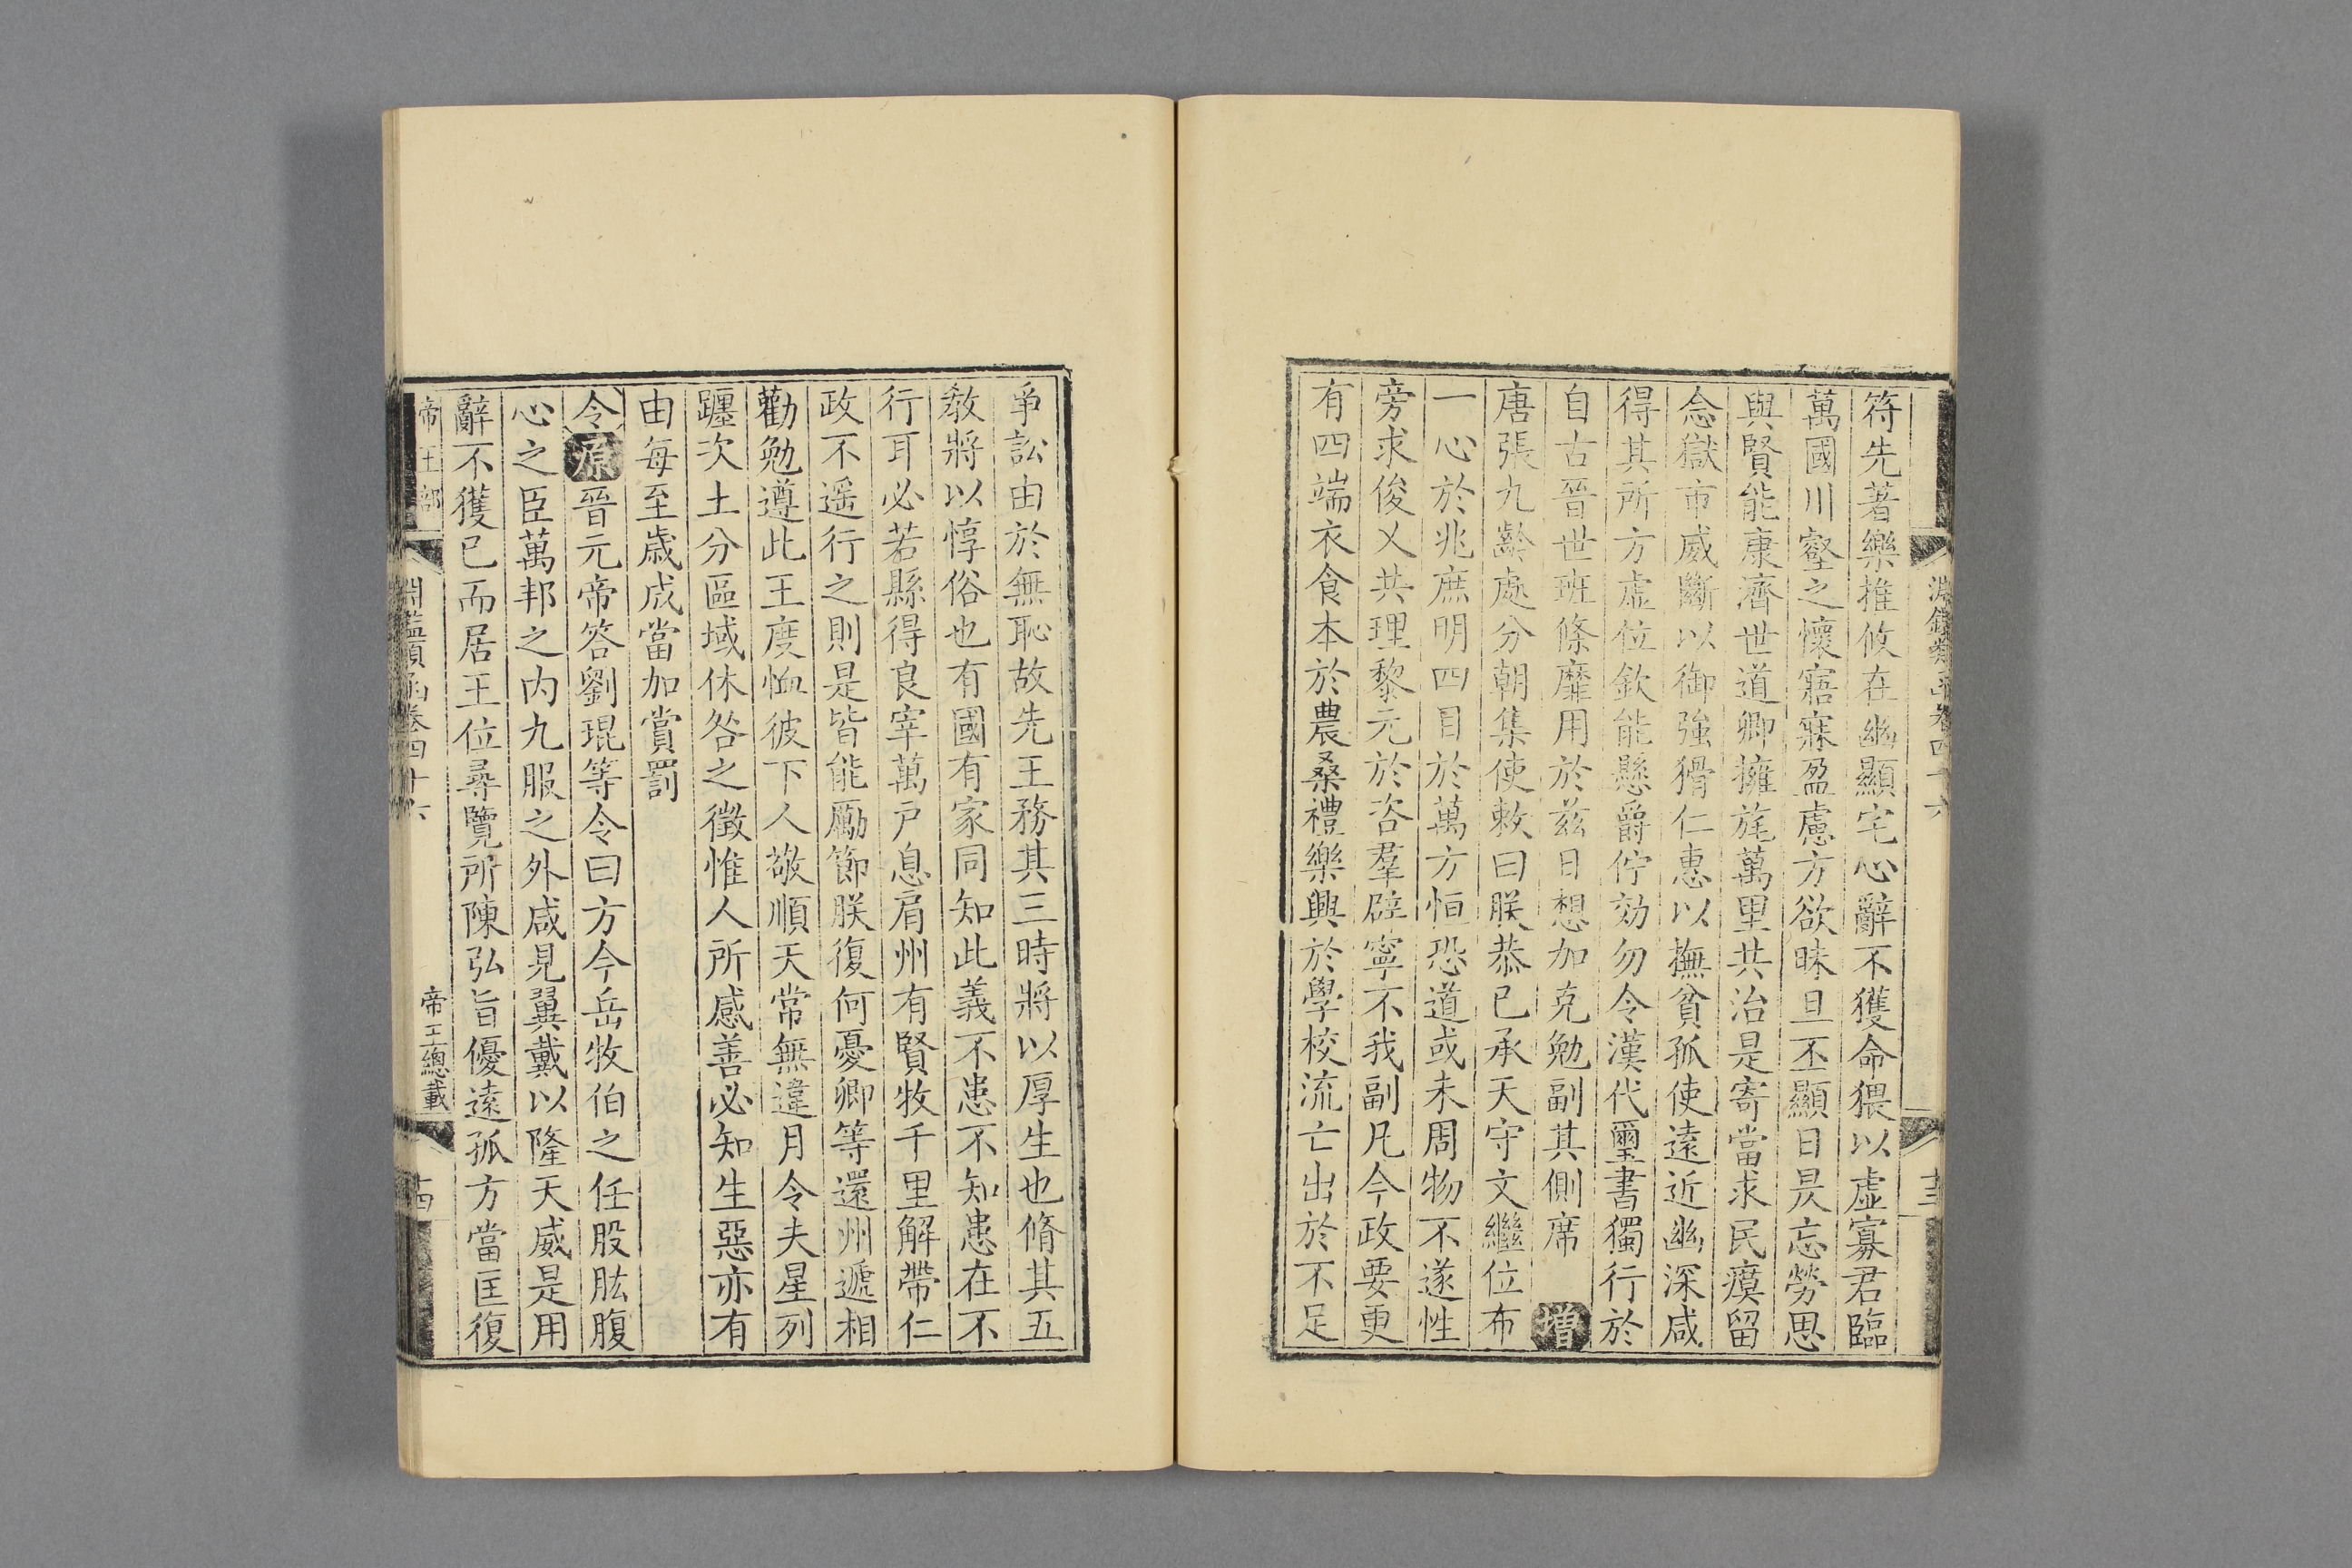 淵鑑類函卷四十六
十三
符先著樂推攸在幽顯宅心辭不獲命猥以虛寡君臨
萬國川壑之懷寤寐盈慮方欲昧旦丕顯日昃忘勞思
與賢能康濟世道卿擁旄萬里共治是寄當求民瘼留
念獄市威斷以御強猾仁惠以撫貧孤使遠近幽深咸
得其所方虛位欽能懸爵佇効勿令漢代璽書獨行於
自古晉世班條靡用於兹日想加克勉副其側席 增
唐張九齡處分朝集使敕曰朕恭已承天守文繼位布
一心於兆庶明四目於萬方恒恐道或未周物不遂性
旁求俊乂共理黎元於咨羣辟寧不我副凡今政要更
有四端衣食本於農桑禮樂興於學校流亡出於不足
爭訟由於無恥故先王務其三時將以厚生也脩其五
教將以惇俗也有國有家同知此義不患不知患在不
行耳必若縣得良宰萬戶息肩州有賢牧千里解帶仁
政不遥行之則是皆能勵節朕復何憂卿等還州遞相
勸勉遵此王度恤彼下人敬順天常無違月令夫星列
躔次土分區域休咎之徵惟人所感善必知生惡亦有
由每至歲成當加賞罰
令原晉元帝答劉琨等令曰方今岳牧伯之任股肱腹
心之臣萬邦之内九服之外咸見翼戴以隆天威是用
辭不獲已而居王位尋覽所陳弘旨優遠孤方當匡復
帝王部
淵鑑類函卷四十六
帝王總載
十四